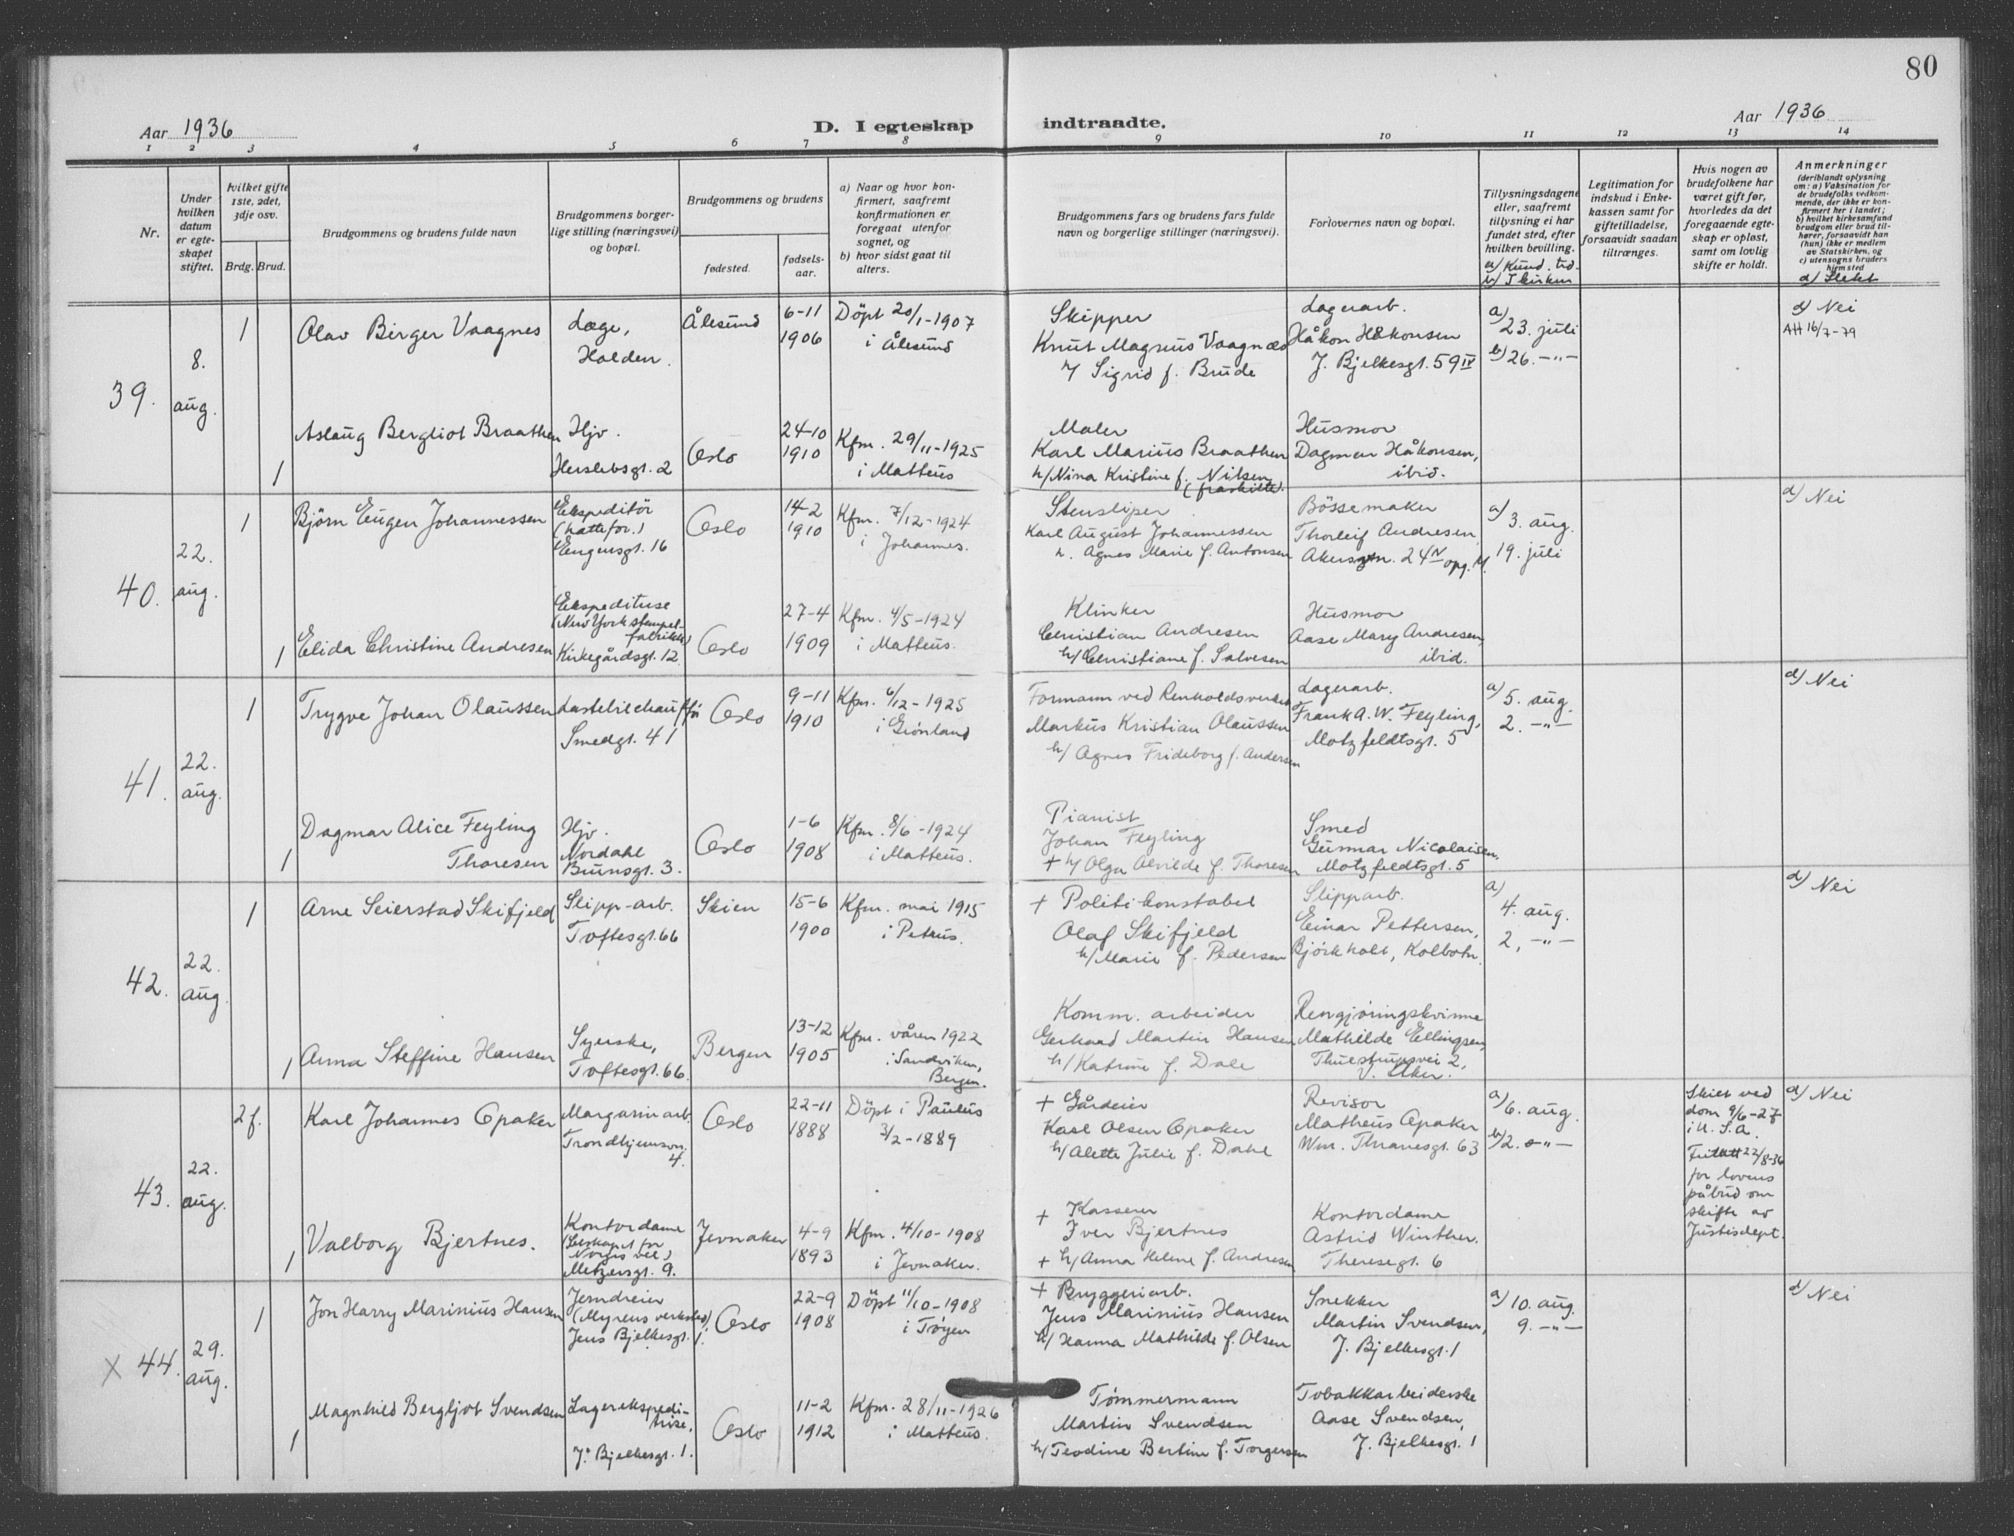 80
Aar 1936
D. I egteskap indtraadte.
Aar 1936
1 2 3 4 5 6 7 8 9 10 11 12 13 14
Nr.
Under hvilken datum er egteskapet stiftet.
Hvilket gifte 1ste, 2det, 3dje osv.
Brdg. Brud.
Brudgommens og brudens fulde navn
Brudgommens borgerlige stilling (næringsvei) og bopæl.
Brudgommens og brudens
fødested.
fødselsaar.
a) Naar og hvor konfirmert, saafremt konfirmationen er foregaat utenfor sognet, og
b) hvor sidst gaat til alters.
Brudgommens fars og brudens fars fulde navn og borgerlige stillinger (næringsvei).
Forlovernes navn og bopæl.
Tillysningsdagene eller, saafremt tillysning ei har fundet sted, efter hvilken bevilling.
a/ Kund. tid.
b/ I kirken
Legitimation for indskud i Enkekassen samt for giftetilladelse, forsaavidt saadan tiltrænges.
Hvis nogen av brudefolkene har været gift før, hvorledes da det foregaaende egteskap er opløst, samt om lovlig skifte er holdt.
Anmerkninger
(deriblandt oplysning om: a) Vaksination for de brudefolks vedkommende, der ikke er konfirmert her i landet; b) hvilket kirkesamfund brudgom eller brud tilhører, forsaavidt han (hun) ikke er medlem av Statskirken, og c) utensogns bruders hjemsted
d) Slekt
39.
8. aug.
1
Olav Birger Vaagnes
Læge,
Halden.
Ålesund
6-11
1906
Döpt 20/1-1907
i Ålesund
Skipper
Knut Magnus Vaagnæs
h/ Sigrid f. Brude
Lagerarb.
Håkon Håkonsen
J. Bjelkesgt. 59 IV
a) 23. juli
b) 26. -"-
d) Nei
AH 16/7-79
1
Aslaug Bergliot Braathen
Hjv.
Herslebsgt. 2
Oslo
24-10
1910
Kfm. 29/11-1925
i Matteus
Maler
Karl Marius Braathen
h/ Nina Kristine f. Nilsen
(fraskilte).
Husmor
Dagmar Håkonsen,
ibid.
40.
22. aug.
1
Bjørn Eugen Johannessen
Ekspeditör
(hattefor.)
Eugensgt. 16
Oslo
14-2
1910
Kfm. 7/12-1924
i Johannes.
Stensliper
Karl August Johannessen
h. Agnes Marie f. Antonsen
Bössemaker
Thorleif Andresen
a) 3. aug.
19. juli
d) Nei
1
Elida Christine Andresen
Ekspeditrise
(New York stempelfabrikk)
Kirkegårdsgt. 12
Oslo
27-4
1909
Kfm. 4/5-1924
i Matteus.
Klinker
Christian Andresen
h/ Christiane f. Salvesen
Husmor
Aase Mary Andresen,
ibid.
41.
22. aug.
1
Trygve Johan Olaussen
Lastebilchauffør
Smedgt. 41
Oslo
9-11
1910
Kfm. 6/12-1925
i Grønland
Formann ved Renholdsverket
Markus Kristian Olaussen
h/ Agnes Frideborg f. Andersen
Lagerarb.
Frank A. W. Feyling,
Motzfeldtsgt. 5
a) 5. aug.
2. -"-
d) Nei
1
Dagmar Alice Feyling
Thoresen
Hjv.
Nordahl
Brunsgt. 3.
Oslo
1-6
1908
Kfm. 8/6-1924
i Matteus.
Pianist
Johan Feyling
+ h/ Olga Alvilde f. Thoresen
Smed
Gunnar Nicolaisen,
Motzfeldtsgt. 5
42.
22. aug.
1
Arne Seierstad Skifjeld
Slipp-arb.
Toftesgt. 66
Skien
15-6
1900
Kfm. mai 1915
i Petrus.
+ Politikonstabel
Olaf Skifjeld
h/ Marie f. Pedersen
Slipparb.
Einar Pettersen,
Bjørkholt, Kolbotn.
a) 4. aug.
2. -"-
d) Nei
1
Anna Steffine Hansen
Syerske,
Toftesgt. 66.
Bergen
13-12
1905
Kfm. våren 1922
i Sandviken,
Bergen.
Komm. arbeider
Gerhard Martin Hansen
h/ Katrine f. Dale
Rengjøringskvinne
Mathilde Ellingsen,
Thuestrupsvei 2,
V. Aker.
43.
22. aug.
2f.
Karl Johannes Opaker
Margarinarb.
Trondhjemsvn. 4.
Oslo
22-11
1888
Döpt i Paulus
3/2-1889
+ Gårdeier
Karl Olsen Opaker
h/ Alette Julie f. Dahl
Revisor
Matheus Opaker
Wm. Thranesgt. 63
a) 6. aug.
b) 2. -"-
Skilt ved
dom 9/6-27
i U.S.A.
Fritatt 22/8-36
for lovens
påbud om
skifte av
Justisdept.
d) Nei
1
Valborg Bjertnes.
Kontordame
(Selskapet for
Norges vel)
Metzersgt. 9.
Jevnaker
4-9
1893
Kfm. 4/10-1908
i Jevnaker.
+ Kasserer
Iver Bjertnes
+ h/ Anna Helene f. Andresen
Kontordame
Astrid Winther.
Theresegt. 6
x 44.
29. aug.
1
Jon Harry Marinius Hansen
Jerndreier
(Myrens verksted)
Jens Bjelkesgt. 1.
Oslo
22-9
1908
Döpt 11/10-1908
i Tøyen
+ Bryggeriarb.
Jens Marinius Hansen
h/ Hanna Mathilde f. Olsen
Snekker
Martin Svendsen,
J. Bjelkesgt. 1
a) 10. aug.
9. -"-
d) Nei
1
Magnhild Bergljot Svendsen
Lagerekspeditrise,
J. Bjelkesgt. 1.
Oslo
11-2
1912
Kfm. 28/11-1926
i Matteus.
Tømmermann
Martin Svendsen
h/ Teodine Bertine f. Torgersen
Tobakkarbeiderske
Aase Svendsen,
J. Bjelkesgt. 1